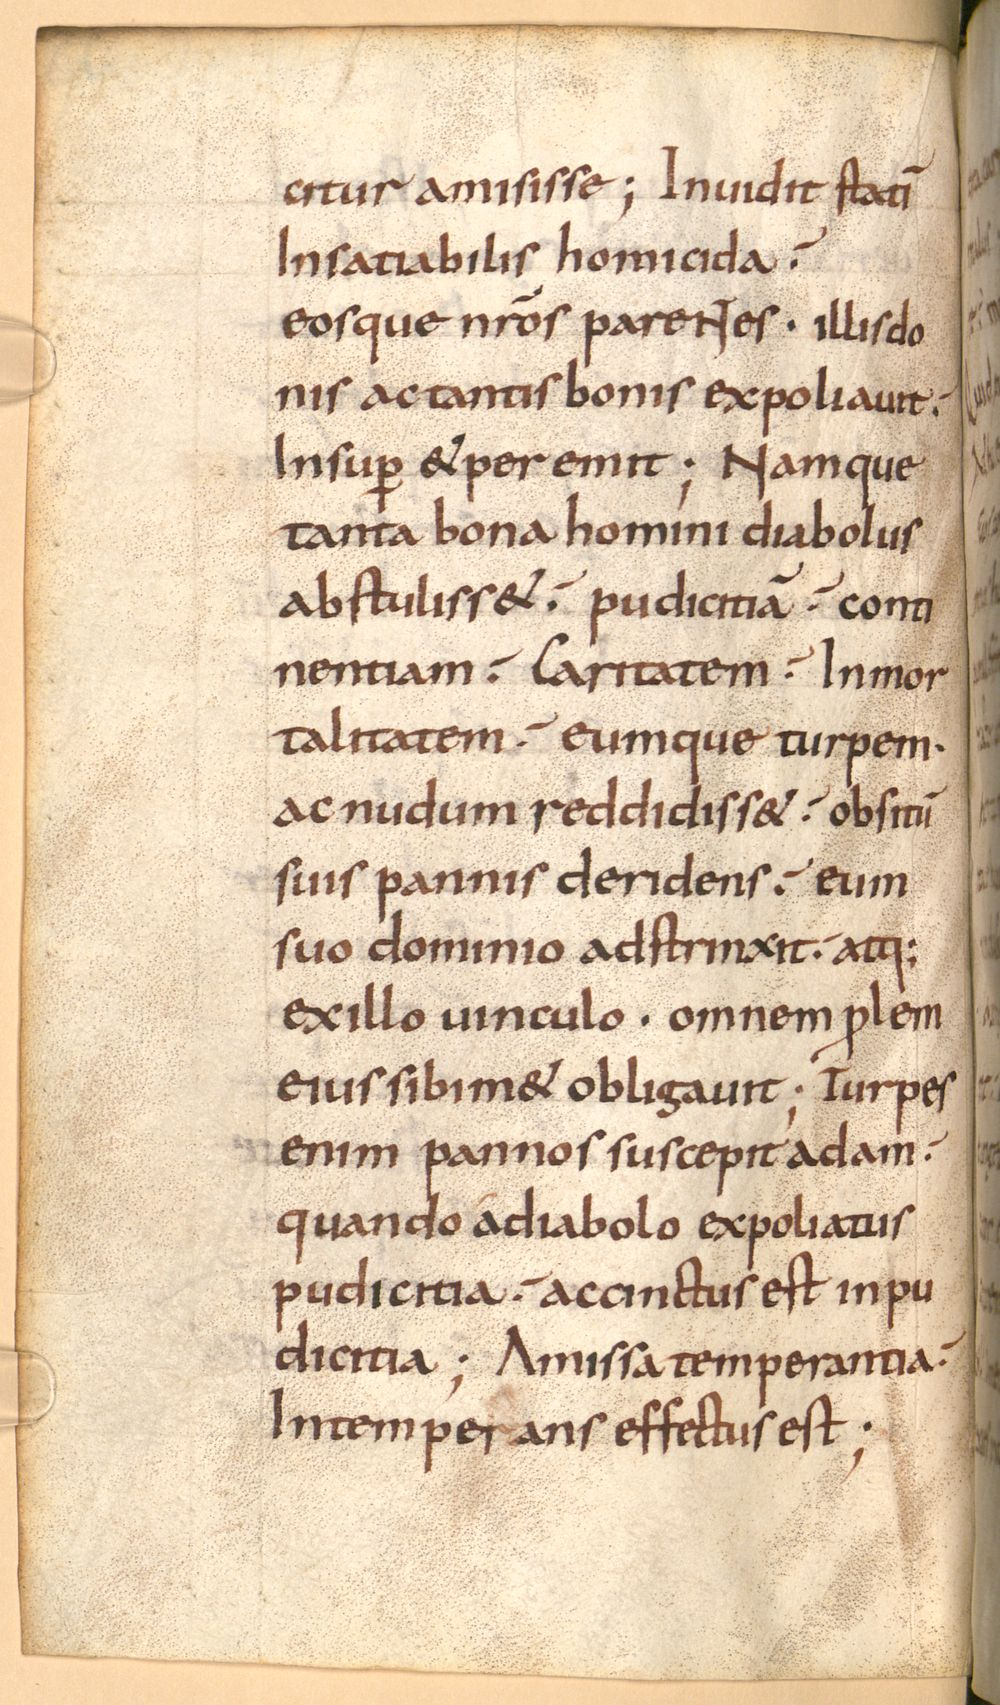 citur amisisse; Inuidit statī
Insatiabilis homicida·
eosque nrōs parentes· illisdo
nis ac tantis bonis expoliauit·
Insuꝑ & per emit; Namque
tanta bona homini diabolus
abstuliss&· pudicitiā· conti
nentiam· Caritatem· Inmor
talitatem· eumque turpem·
ac nudum reddidiss&· obsitū
suis pannis deridens· eum
suo dominio adstrinxit· atq;
exillo uinculo· omnem ꝓlem
eius sibim& obligauit; Turpes
enim pannos suscepit adam·
quando adiabolo expoliatus
pudicitia· accinctus est inpu
dicitia; Amissa temperantia·
Intemperans effectus est;